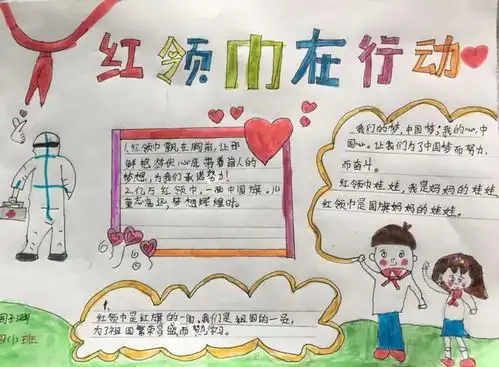 红领巾在行动
1.红领巾飘在胸前,让那
鲜艳
梦想,为我们
2.亿万红领巾,一面中国旗。
梦想辉煌时。
我们的梦,中国梦;我的心,中
国心。让我们为了中国梦而努力
而奋斗。
红领巾娃娃,我是妈妈的娃娃
红领巾是国旗妈妈的娃娃。
红领巾是红旗的一角,我们是祖国的一员,
为了祖国繁荣昌盛而努力学习。
四小 班